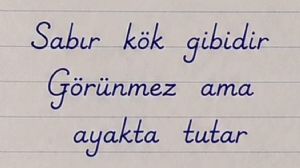 Sabır kök gibidir
Görünmez ama
ayakta tutar